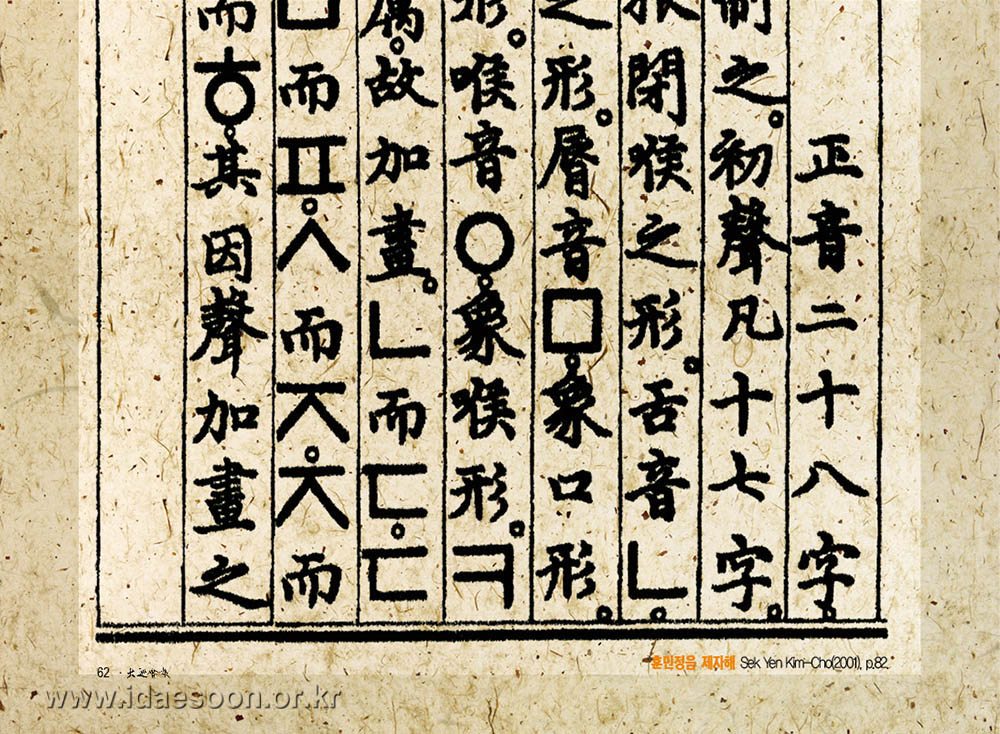 正音二十八字。
制之。初聲凡十七字。
閉喉之形。舌音ㄴ。
之形。脣音ㅁ。象口形。
形。喉音ㅇ。象喉形。ㅋ
厲。故加畫。ㄴ而ㄷ。ㄷ
而ㅍ。ㅅ而ㅈ。ㅈ而
而ㆆ。其因聲加畫之
62 ·
훈민정음 제자해 Sek Yen Kim-Cho(2001), p.82.
www.idaesoon.or.kr